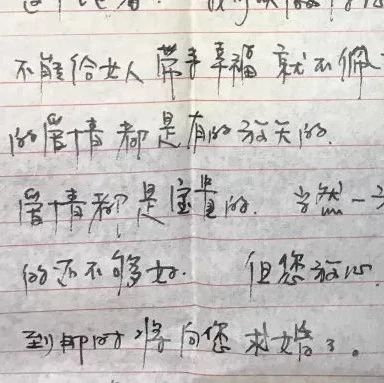 不能给女人带来幸福就不佩
的爱情都是有的放矢的.
爱情都是宝贵的. 当然一
的还不够好. 但您放心.
到那时将向您求婚了。